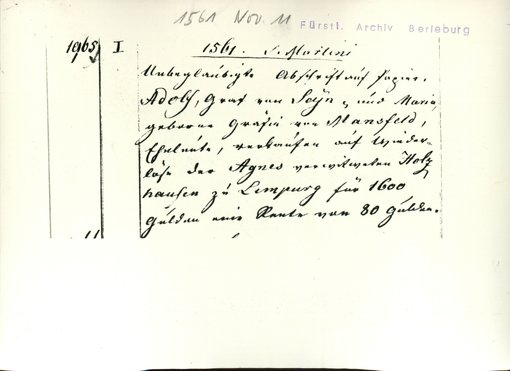 1561 Nov. 11
Fürstl. Archiv Berleburg
1965 I. 1561. S. Martini
Unbeglaubigte Abschrift auf Papier.
Adolf, Graf von Sayn, und Maria
geborne Gräfin von Mansfeld,
Eheleute, verkaufen auf Wieder-
löse der Agnes verwitweten Holz
hausen zu Limpurg für 1600
Gulden eine Rente von 80 Gulden.